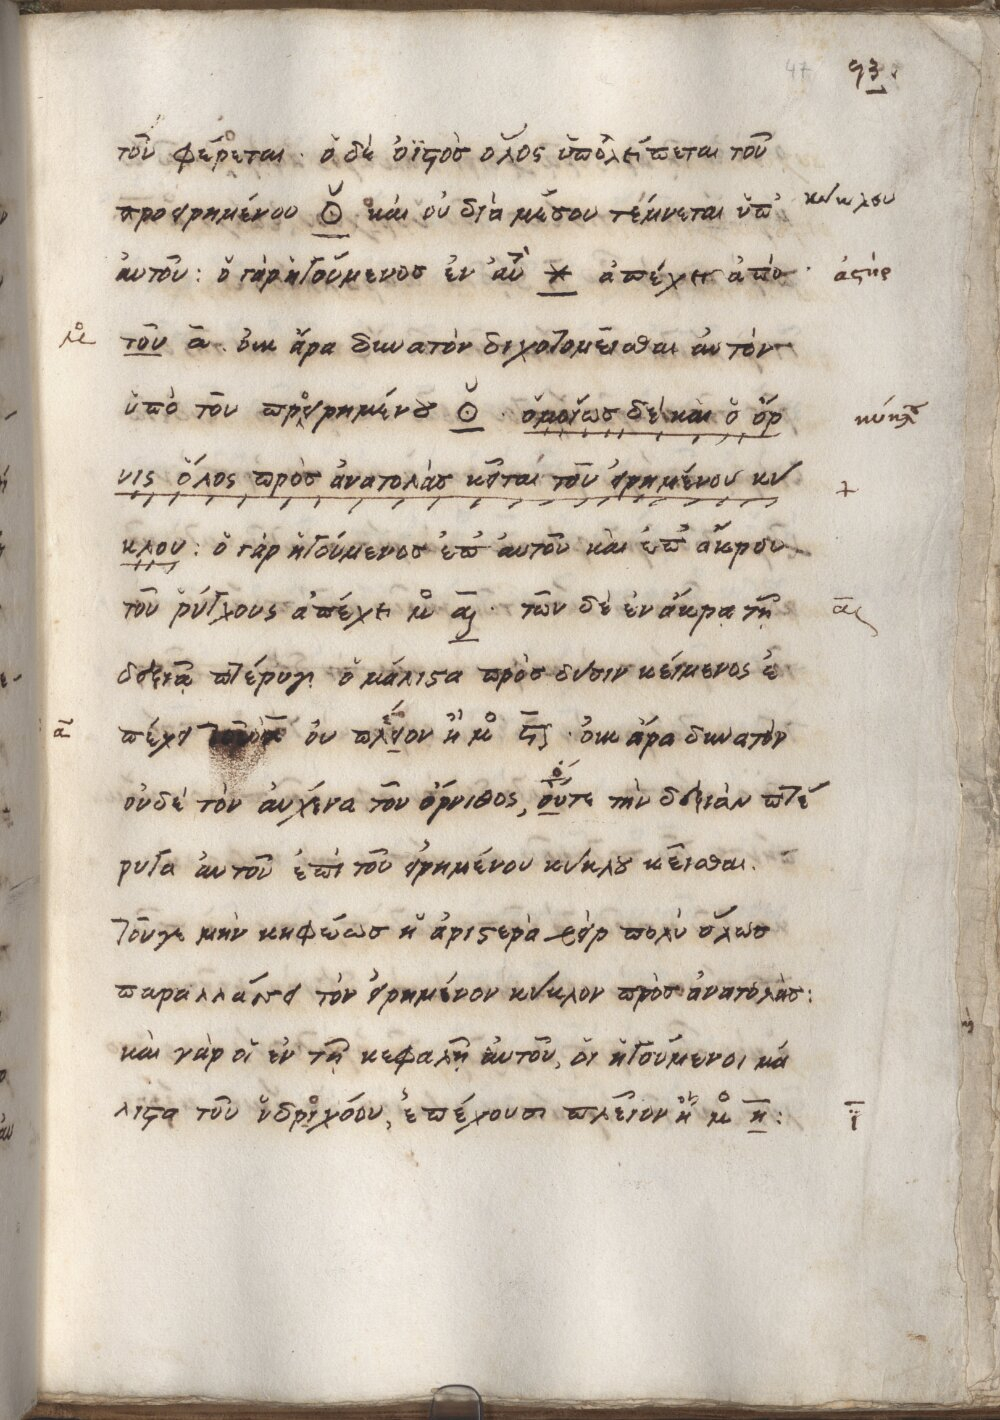 47 93
τοῦ φέρεται. ὁ δὲ ὀϊστὸσ ὅλος ὑπολείπεται τοῦ
προειρημένου ☉ καὶ οὐ διὰ μέσου τέμνεται ὑπ' κύκλου
ἀυτοῦ: ὁ γὰρ ἡγούμενοσ ἐν ἀυτῶ * ἀπέχει ἀπὸ · ἀστὴρ
μο τοῦ α. οὐκ ἄρα δυνατὸν διχοτομεῖσθαι αὐτὸν
ὑπὸ τοῦ προειρημένου ☉ · ὁμοίωσ δὲ καὶ ὁ ὄρ κύκλου
νις ὅλος πρὸσ ἀνατολὰσ κεῖται τοῦ εἰρημένου κύ +
κλου: ὁ γὰρ ἡγούμενοσ ἐπ' ἀυτοῦ καὶ ἐπ' ἄκρου
τοῦ ῥύγχους ἀπέχει μο ας · τῶν δὲ ἐν ἄκρᾳ τῇ ας
δεξιᾷ πτέρυγι ὁ μάλιστα πρὸσ δύσιν κείμενος ἐ
α πέχει οὐ πλεῖον ἢ μο · οὐκ ἄρα δυνατὸν
οὐδὲ τὸν ἀυχένα τοῦ ὄρνιθος, οὔτε τὴν δεξιὰν πτέ
ρυγα ἀυτοῦ ἐπὶ τοῦ εἰρημένου κύκλου κεῖσθαι.
τοῦγε μὴν κηφέωσ ἡ ἀριστερὰ χεὶρ πολὺ ὅλωσ
παραλλάσσει τὸν εἰρημένον κύκλον πρὸσ ἀνατολὰσ:
καὶ γὰρ οἱ ἐν τῇ κεφαλῇ ἀυτοῦ, οἱ ἡγούμενοι μά
λιστα τοῦ ὑδριχόου, ἐπέχουσι πλεῖον ἢ μο η: ϊ